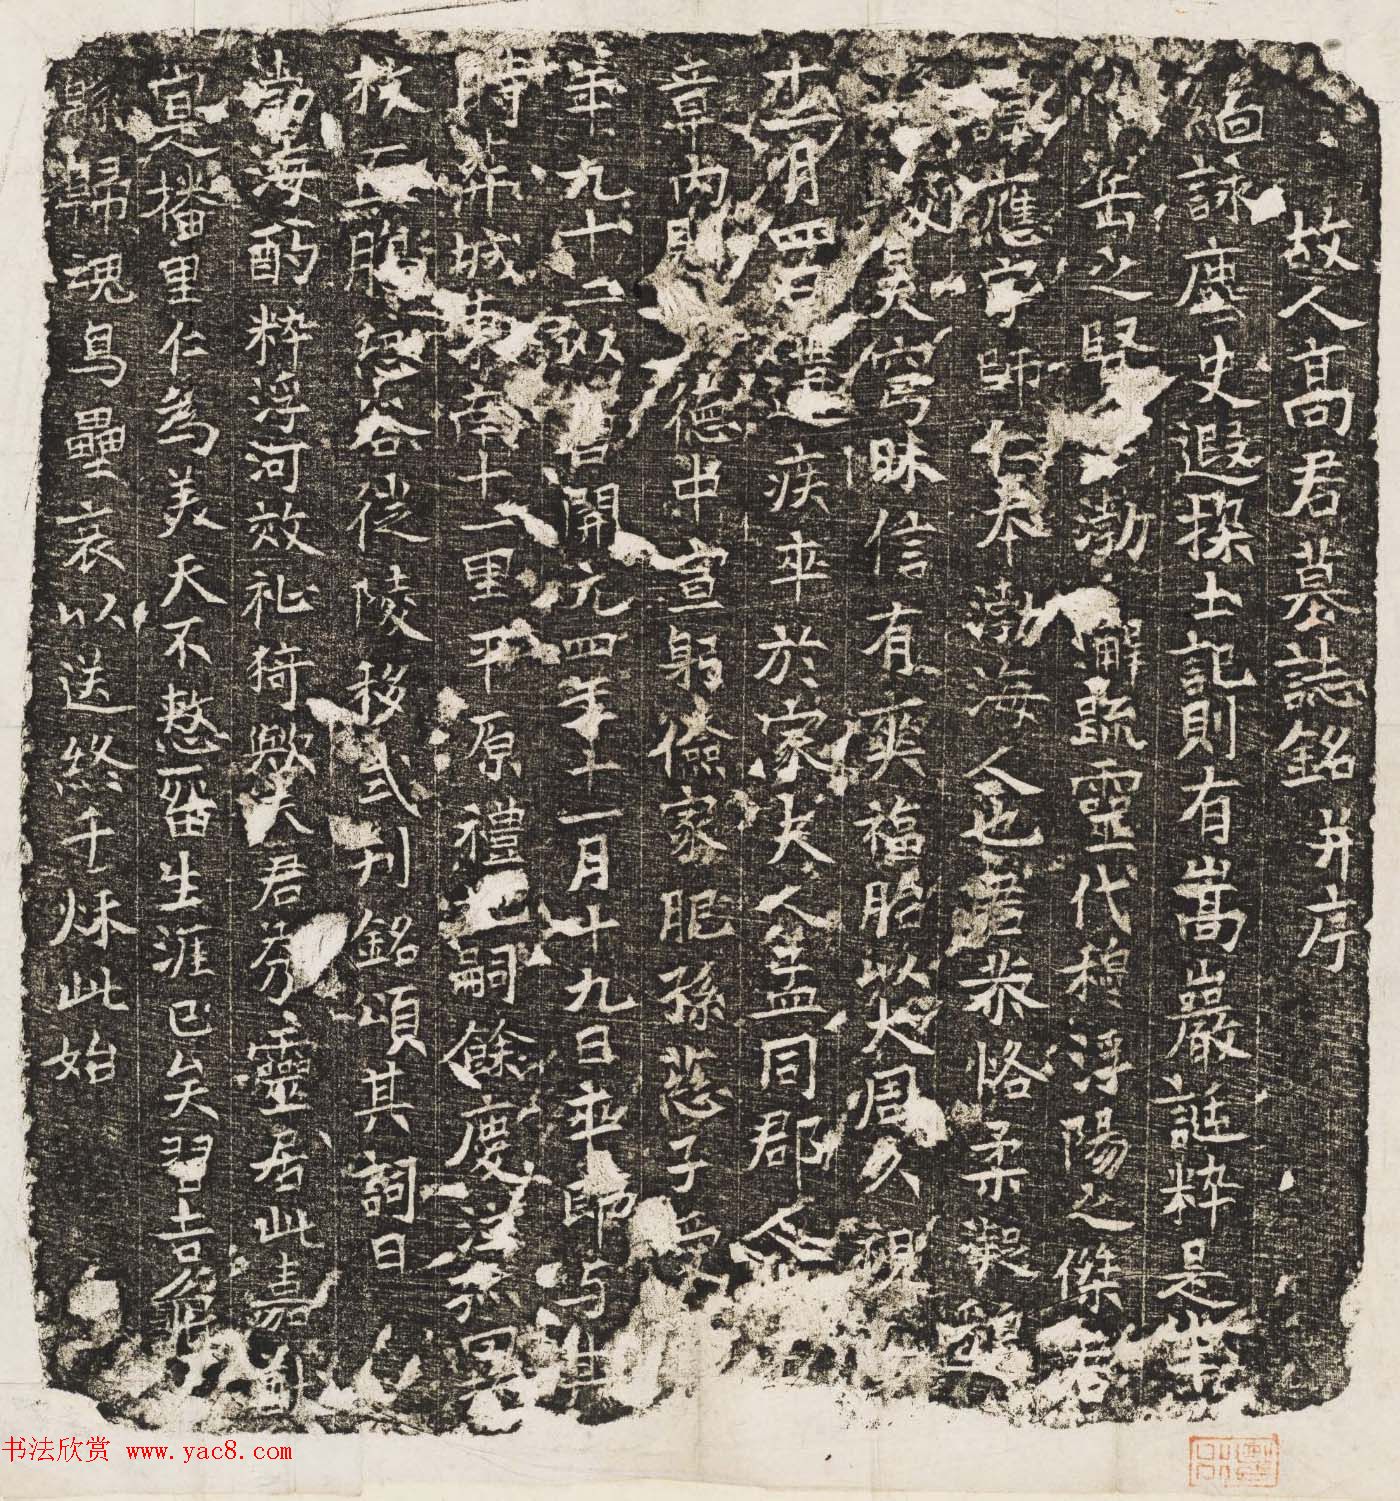 故人高君墓誌銘并序
緬詠塵史遐探士記則有嵩巖誕粹是
岳之賢渤澥蹤靈代穆浮陽之傑君
諱應字師仁本渤海人也君恭恪柔凝
昊穹昧信有爽福貽以大周久視
十一月四日遘疾卒於家夫人孟同郡
章内則德中宣躬儉家肥孫慈子
年九十二以開元四年十一月十九日卒即与其
時葬城東南十一里平原禮也嗣餘慶
恐谷徙陵移式刊銘頌其詞曰
渤海酌粹浮河效祉猗歟夫君秀靈居此嘉
寘播里仁為美天不慭留生涯已矣習吉
縣歸魂鳥壘哀以送終千秌此始
书法欣赏 www.yac8.com